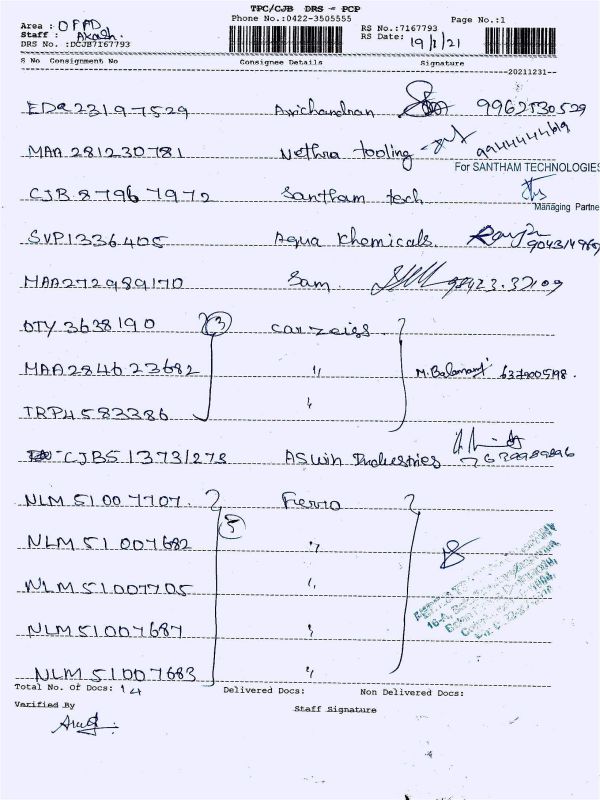 TPC/CJB DRS - PCP
Phone No.:0422-3505555
Page No.:1
Area : OFFD
Staff : Akash.
DRS No. :DCJB7167793
RS No.:7167793
RS Date: 19/1/21
S No Consignment No Consignee Details Signature
20211231
EDR 23197529 Arichandran 9962530529
MAA 281230781 Nethra tooling 9944444619
For SANTHAM TECHNOLOGIES
CJB 87967972 Santham tech
Managing Partne
SVP1336405 Aqua Khemicals.
MAA272989170 Sam. 98423.32109
DTY 3638190 3 carzeiss.
MAA284623682 " M. Balamani
TRP4583386 "
CJB513731273 Aswin Industries
NLM 51007707. Fierro
5
NLM 51007682 "
NLM51007705 "
NLM51007687 "
NLM 51007683 "
Total No. Of Docs: 14 Delivered Docs: Non Delivered Docs:
Varified By Staff Signature